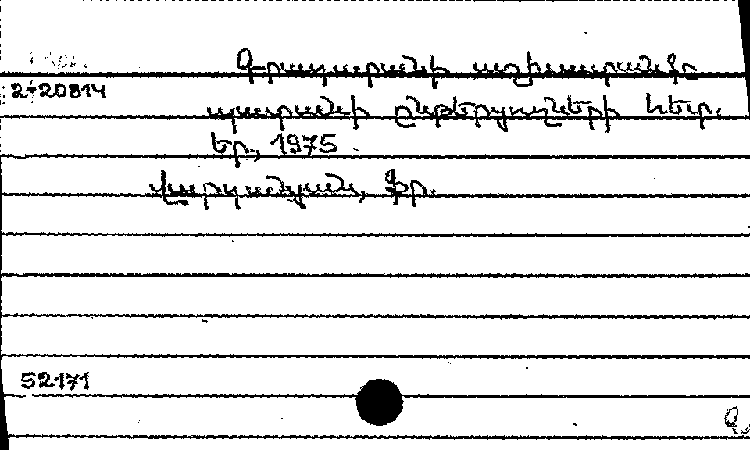 Գրադարանի աշխատանքը
2+20814
պատանի ընթերցողների հետ.
Եր., 1975
Վարդանյան, Ֆր.
52171